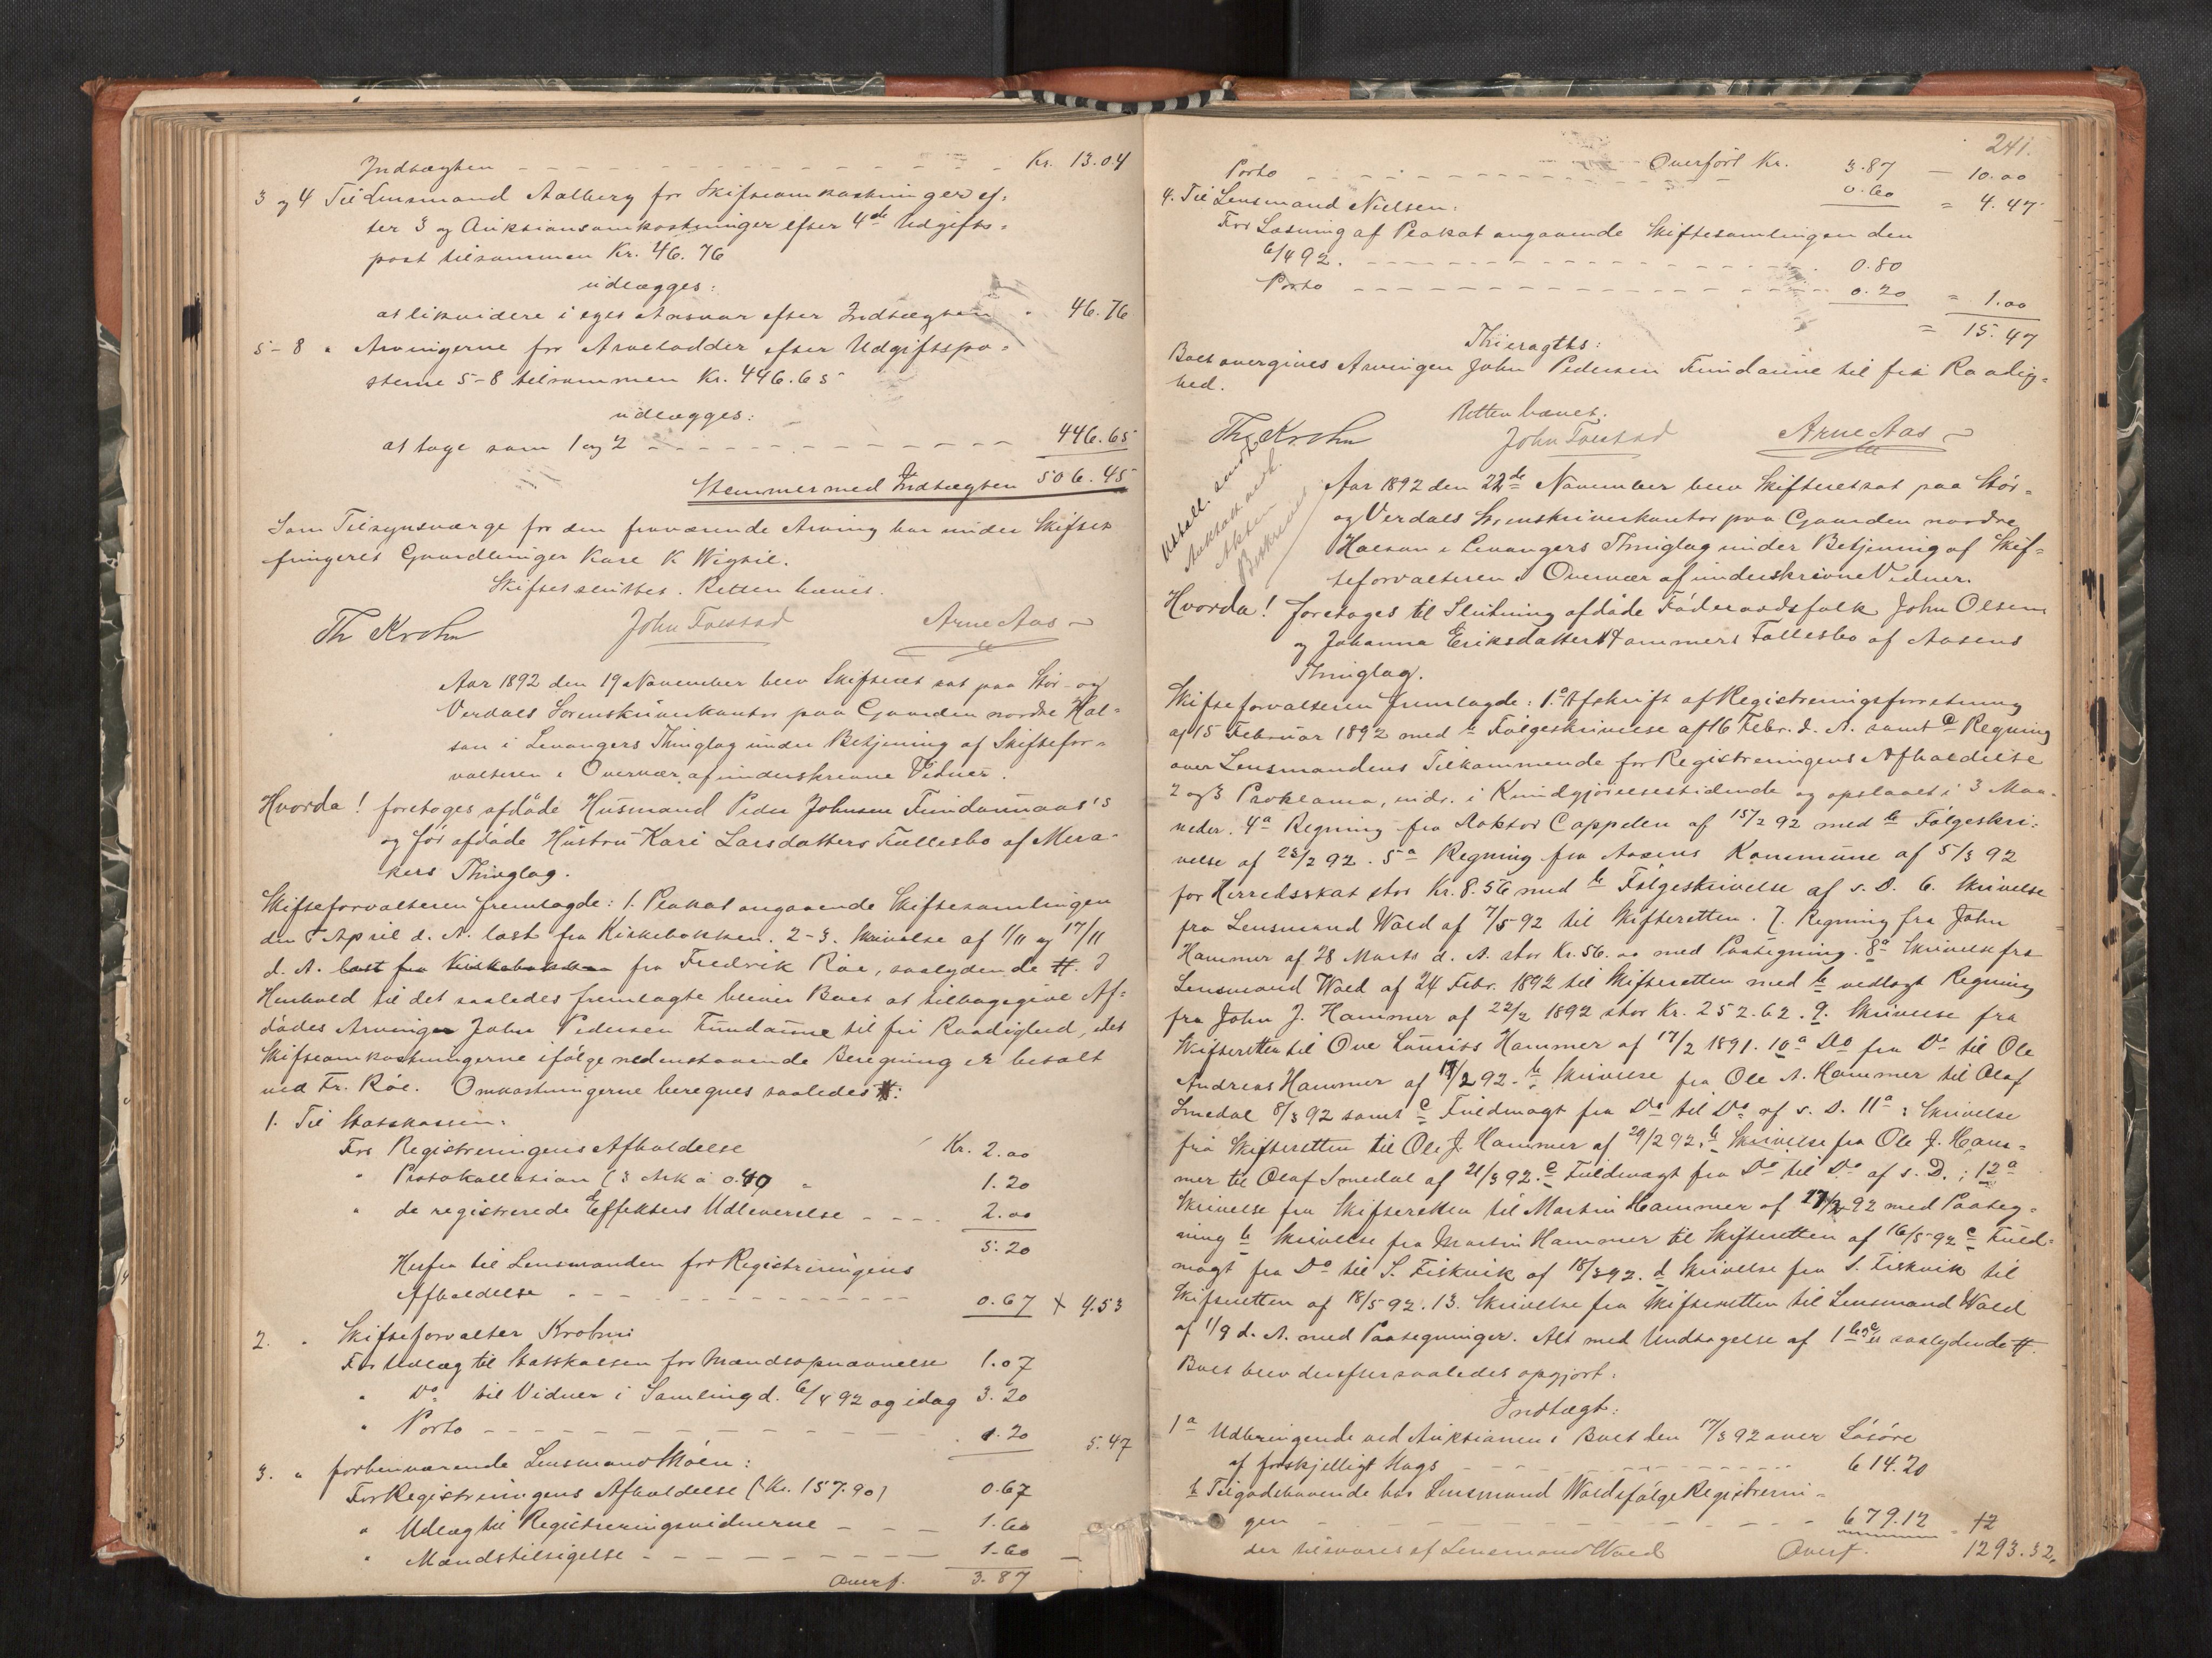 Indtægten - - - - - - - - - - - - Kr. 13.04
3 og 4 Til Lensmand Aalberg for Skifteomkostninger ef-
ter 3 og Auktionsomkostninger efter 4de Udgifts-
post tilsammen Kr. 46.76
udlægges:
at likvidere i eget Ansvar efter Indtægten " 46.76
5-8 " Arvingerne for Arvelodder efter Udgiftspo-
sterne 5-8 tilsammen Kr. 446.65
udlægges:
at tage som 1 og 2 - - - - - - - - - - - 446.65
Stemmer med Indtægten 506.45
Som Tilsynsværge for den fraværende Arving har under Skiftet
fungeret Gaardbruger Kare K Wigtil.
Skiftet sluttet. Retten hævet.
Th Krohn John Foestad Arne Aas
Aar 1892 den 19 November blev Skifteret sat paa Stør- og
Verdals Sorenskriverkontor paa Gaarden nordre Hal-
san i Levangers Thinglag under Betjening af Skiftefor-
valteren i Overvær af underskrevne Vidner.
Hvorda! foretoges afdøde Husmand Peder Johnsen Fundaunaas's
og før afdøde Hustru Kari Larsdatters Fællesbo af Mera-
kers Thinglag.
Skifteforvalteren fremlagde: 1. Plakat angaaende Skiftesamlingen
den 6 April d. A. læst fra Kirkebakken. 2-3. Skrivelse af 1/11 og 17/11
d. A. læst fra Kirkebakken fra Fredrik Røe, saalydende #. I
Henhold til det saaledes fremlagte bliver Boet at tilbagegive Af-
dødes Arvinger John Pedersen Fundaune til fri Raadighed, idet
Skifteomkostningerne ifølge nedenstaaende Beregning er betalt
ved Fr. Røe. Omkostningerne beregnes saaledes #:
1. Til Statskassen:
For Registreringens Afholdelse Kr. 2.00
" Protokollation (3 Ark à 0.40 " 1.20
" de registrerede Effekters Udleverelse - - - - 2.00
5.20
Herfra til Lensmanden for Registreringens
Afholdelse - - - - - - - - - - - - 0.67 + 4.53
2. " Skifteforvalter Krohn:
For Udlæg til Statskassen for Mandsopnævnelse 1.07
" Do til Vidner i Samling d. 6/4 92 og idag 3.20
" Porto - - - - - - - - - - - - 1.20 5.47
3. " forhenværende Lensmand Moen:
For Registreringens Afholdelse (Kr. 157.90) 0.67
" Udlæg til Registreringsvidnerne - - - 1.60
" Mandstilsigelse - - - - - - - - - 1.60 -
Overf. 3.87
241.
Overført Kr. 3.87 - 10.00
Porto - - - - - - - - - - 0.60 = 4.47
4. Til Lensmand Nielsen:
For Læsning af Plakat angaaende Skiftesamlingen den
6/4 92. - - - - - - - - - - - - 0.80
Porto - - - - - - - - - - - - 0.20 = 1.00
= 15.47
Thieragtes:
Boet overgives Arvingen John Pedersen Fundaune til fri Raadig-
hed.
Retten hævet.
Th Krohn John Foestad Arne Aas
Aktsatt medt.
Akten
Beskrevet
Aar 1892 den 22de November blev Skifteret sat paa Stør-
og Verdals Sorenskriverkontor paa Gaarden nordre
Halsan i Levangers Thinglag under Betjening af Skif-
teforvalteren i Overvær af underskrevne Vidner.
Hvorda! foretoges til Slutning afdøde Føderaadsfolk John Olsen
og Johanna Eriksdatter Hammers Fællesbo af Aasens
Thinglag.
Skifteforvalteren fremlagde: 1.a Afskrift af Registreringsforretning
af 15 Februar 1892 med b Følgeskrivelse af 16 Febr. d. A. samt c Regning
over Lensmandens Tilkommende for Registreringens Afholdelse
2 og 3 Proklama, indr. i Kundgjørelsestidende og opslaaet i 3 Maa-
neder. 4a Regning fra Doktor Cappelen af 15/2 92 med b Følgeskri-
velse af 23/2 92. 5a Regning fra Aasens Kommune af 5/3 92
for Herredsskat stor Kr. 8.56 med b Følgeskrivelse af s. D. 6. Skrivelse
fra Lensmand Wold af 7/5 92 til Skifteretten. 7. Regning fra John
Hammer af 28 Marts d. A. stor Kr. 56.00 med Paategning. 8a Skrivelse fra
Lensmand Wold af 24 Febr. 1892 til Skifteretten med b vedlagt Regning
fra John J. Hammer af 22/2 1892 stor Kr. 252.62. 9. Skrivelse fra
Skifteretten til Ove Laurits Hammer af 17/2 1891. 10a Do fra Do til Ole
Andreas Hammer af 17/2 92. b Skrivelse fra Ole A. Hammer til Olaf
Smedal 8/3 92 samt c Fuldmagt fra Do til Do af s. D. 11a: Skrivelse
fra Skifteretten til Ole J. Hammer af 29/2 92. b Skrivelse fra Ole J. Ham-
mer til Olaf Smedal af 21/3 92. c Fuldmagt fra Do til Do af s. D.; 12a
Skrivelse fra Skifteretten til Martin Hammer af 17/2 92 med Paateg-
ning b Skrivelse fra Martin Hammer til Skifteretten af 16/5 92 c Fuld-
magt fra Do til S. Fiskvik af 18/3 92. d Skrivelse fra S. Fiskvik til
Skifteretten af 18/5 92. 13. Skrivelse fra Skifteretten til Lensmand Wold
af 1/9 d. A. med Paategninger. Alt med Undtagelse af 1 b og c saalydende #.
Boet blev derefter saaledes opgjort:
Indtægt:
1a Udbringende ved Auktionen i Boet den 17/3 92 over Løsøre
af forskjelligt Slags - - - - - - - - - - 614.20
b Tilgodehavende hos Lensmand Wold ifølge Registrerin-
gen - - - - - - - - - - - - 679.12 = 12
der tilsvares af Lensmand Wold Overf. 1293.32.